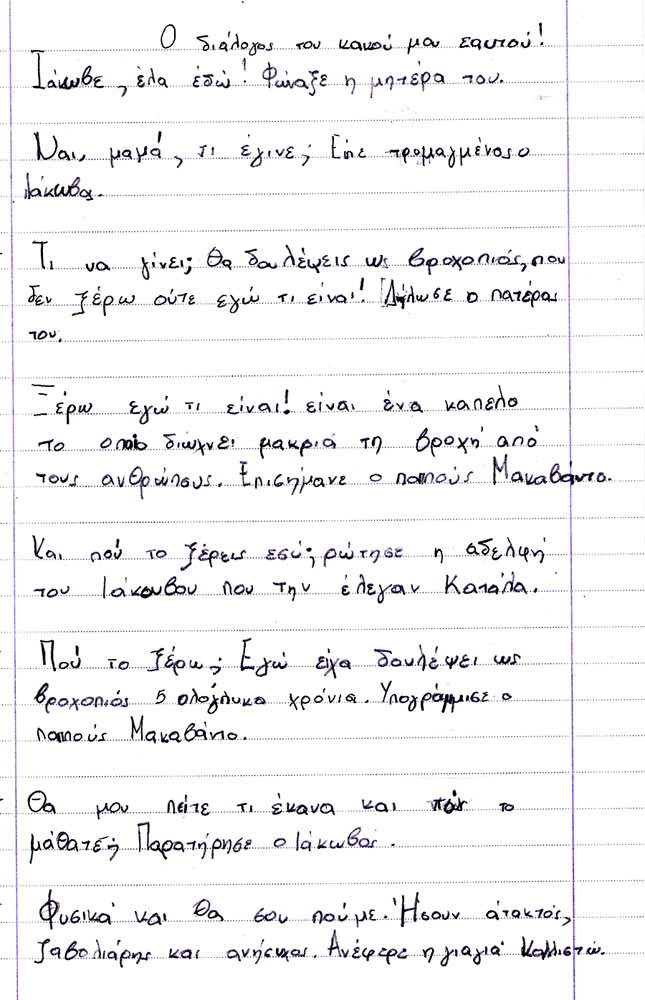 Ο διάλογος του κακού μου εαυτού!
Ιάκωβε, έλα εδώ! Φώναξε η μητέρα του.
Ναι, μαμά, τι έγινε; Είπε τρομαγμένος ο
Ιάκωβος.
Τι να γίνει; Θα δουλέψεις ως βροχοπιός, που
δεν ξέρω ούτε εγώ τι είναι! Δήλωσε ο πατέρας
του.
Ξέρω εγώ τι είναι! είναι ένα καπέλο
το οποίο διώχνει μακριά τη βροχή από
τους ανθρώπους. Επισήμανε ο παππούς Μακαβάντο.
Και πού το ξέρεις εσύ; ρώτησε η αδελφή
του Ιάκουβου που την έλεγαν Κατάλα.
Πού το ξέρω; Εγώ είχα δουλέψει ως
βροχοπιός 5 ολόγλυκα χρόνια. Υπογράμμισε ο
παππούς Μακαβάντο.
Θα μου πείτε τι έκανα και πώς το
μάθατε; Παρατήρησε ο Ιάκωβος.
Φυσικά και θα σου πούμε. Ήσουν άτακτός,
ζαβολιάρης και ανήσυχος. Ανέφερε η γιαγιά Καλλιστώ.